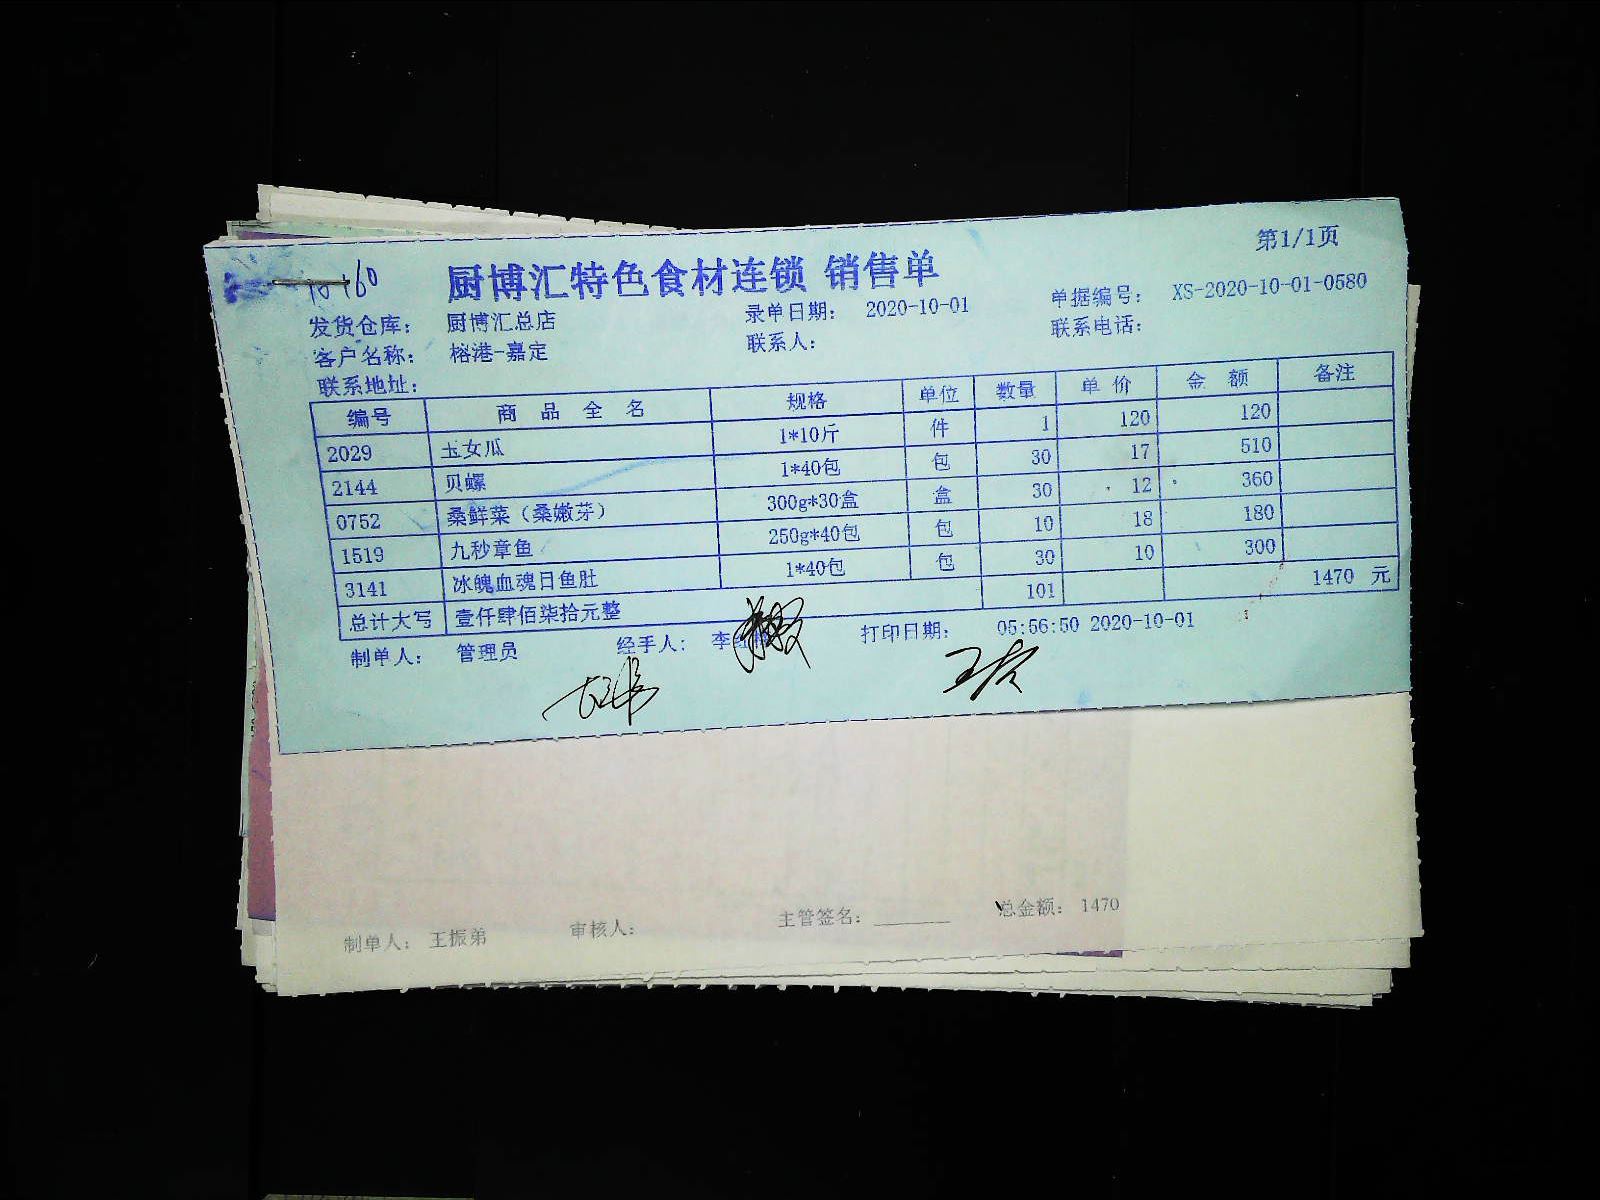 第1/1页
厨博汇特色食材连锁 销售单
发货仓库： 厨博汇总店 录单日期： 2020-10-01 单据编号： XS-2020-10-01-0580
客户名称： 榕港-嘉定 联系人： 联系电话：
联系地址：
编号 商品全名 规格 单位 数量 单价 金额 备注
2029 玉女瓜 1*10斤 件 1 120 120
2144 贝螺 1*40包 包 30 17 510
0752 桑鲜菜（桑嫩芽） 300g*30盒 盒 30 12 360
1519 九秒章鱼 250g*40包 包 10 18 180
3141 冰魄血魂日鱼肚 1*40包 包 30 10 300
总计大写 壹仟肆佰柒拾元整 101 1470 元
制单人： 管理员 经手人： 李红 打印日期： 05:56:50 2020-10-01
制单人： 王振弟 审核人： 主管签名： 总金额： 1470